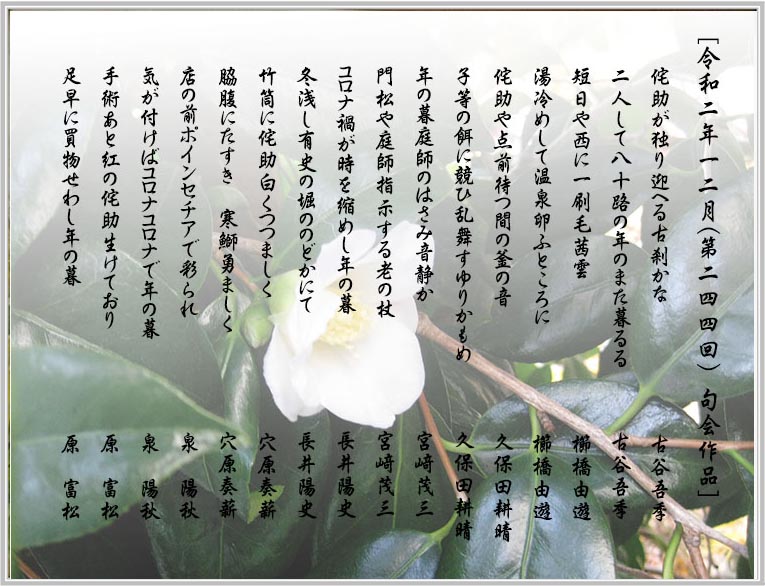 [令和二年一二月(第二四四回) 句会作品]
侘助が独り迎へる古刹かな 古谷吾季
二人して八十路の年のまた暮るる 古谷吾季
短日や西に一刷毛茜雲 櫛橋由遊
湯冷めして温泉卵ふところに 櫛橋由遊
侘助や点前待つ間の釜の音 久保田耕晴
子等の餌に競ひ乱舞すゆりかもめ 久保田耕晴
年の暮庭師のはさみ音静か 宮﨑茂三
門松や庭師指示する老の杖 宮﨑茂三
コロナ禍が時を縮めし年の暮 長井陽史
冬浅し有史の堀ののどかにて 長井陽史
竹筒に侘助白くつつましく 穴原奏薪
脇腹にたすき 寒鰤勇ましく 穴原奏薪
店の前ポインセチアで彩られ 泉 陽秋
気が付けばコロナコロナで年の暮 泉 陽秋
手術あと紅の侘助生けており 原 富松
足早に買物せわし年の暮 原 富松